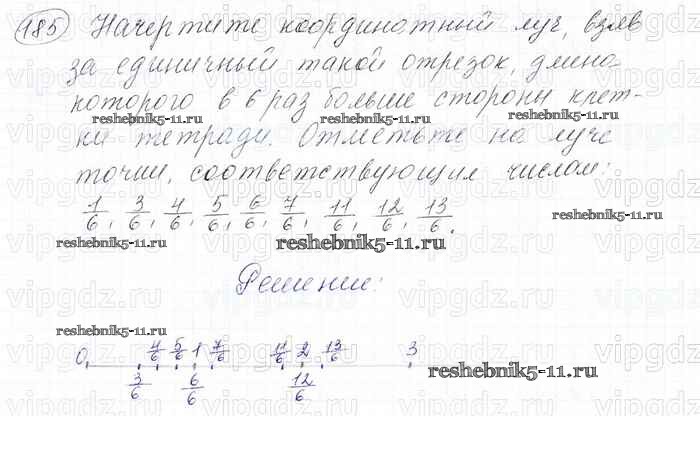 185 Начертите координатный луч, взяв
за единичный такой отрезок, длина
которого в 6 раз больше стороны клет-
reshebnik5-11.ru reshebnik5-11.ru
ки тетради. Отметьте на луче
точки, соответствующие числам:
1/6, 3/6, 4/6, 5/6, 6/6, 7/6, 11/6, 12/6, 13/6.
reshebnik5-11.ru reshebnik5-11.ru reshebnik5-11.ru
Решение:
vipgdz.ru vipgdz.ru vipgdz.ru
reshebnik5-11.ru
0 4/6 5/6 1 7/6 11/6 2 13/6 3
3/6 6/6 12/6
reshebnik5-11.ru
vipgdz.ru vipgdz.ru vipgdz.ru